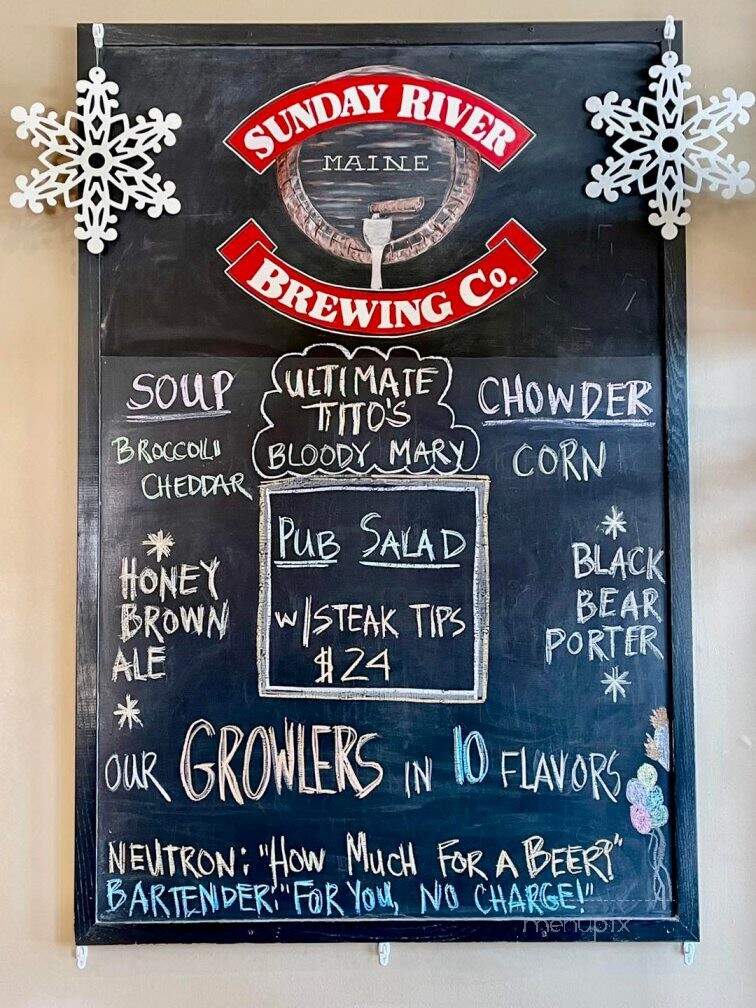 SUNDAY RIVER
MAINE
BREWING CO.
SOUP
BROCCOLI
CHEDDAR
ULTIMATE
TITO'S
BLOODY MARY
CHOWDER
CORN
PUB SALAD
W/STEAK TIPS
$24
HONEY
BROWN
ALE
BLACK
BEAR
PORTER
OUR GROWLERS IN 10 FLAVORS
NEUTRON: "HOW MUCH FOR A BEER?"
BARTENDER: "FOR YOU, NO CHARGE!"
menupix